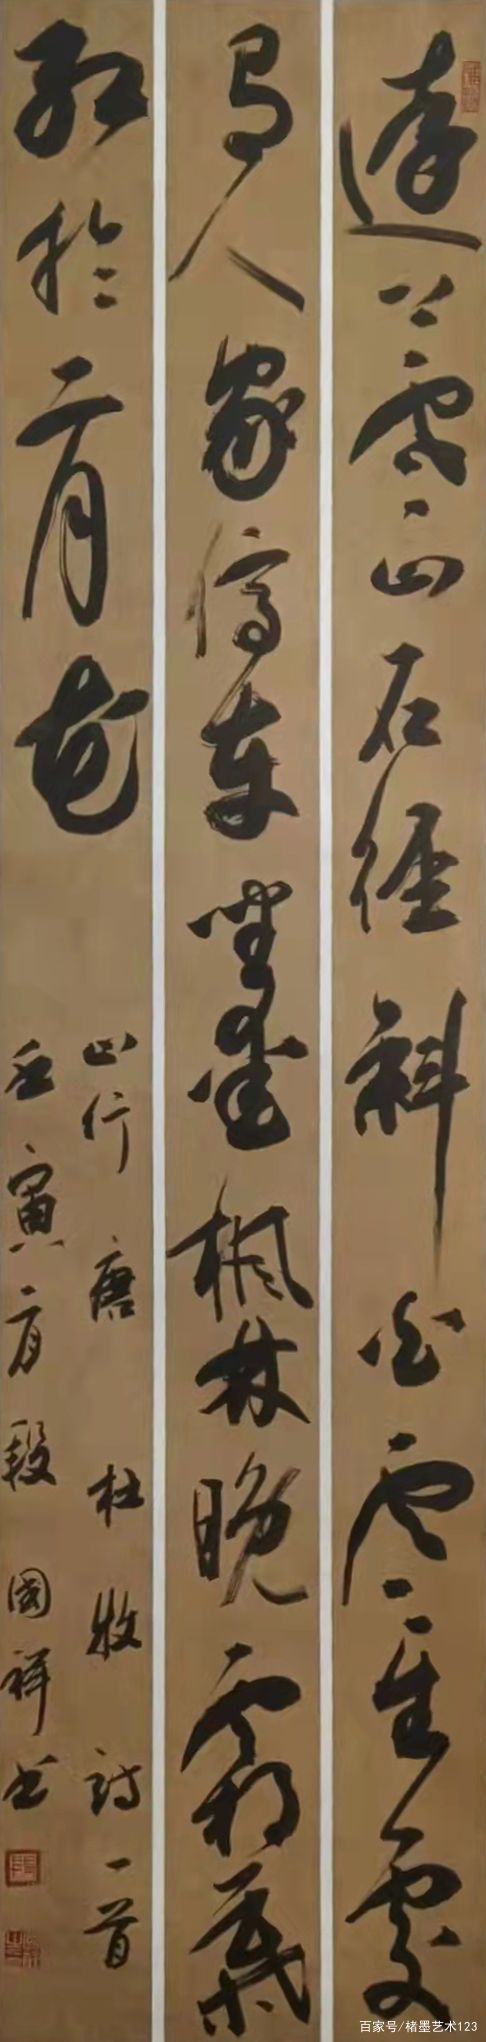 遠上寒山石徑斜白雲生處
有人家停車坐愛楓林晚霜葉
紅於二月花
山行唐杜牧詩一首
壬寅二月段國祥書
百家号/楮墨艺术123